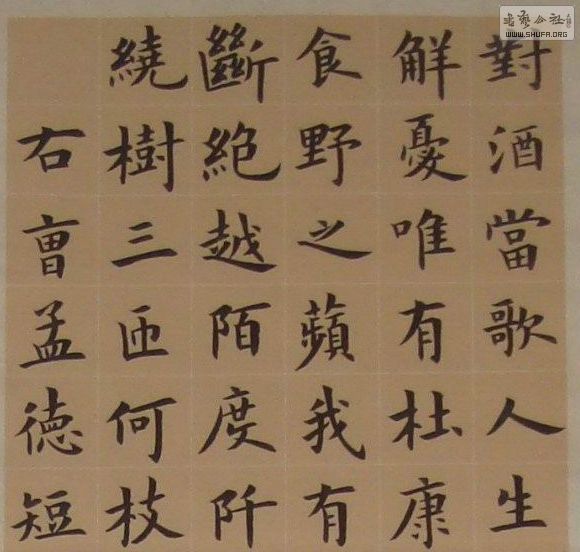 對酒當歌人生
觧憂唯有杜康
食野之蘋我有
斷絶越陌度阡
繞樹三匝何枝
右曺孟德短
書藝公社
WWW.SHUFA.ORG